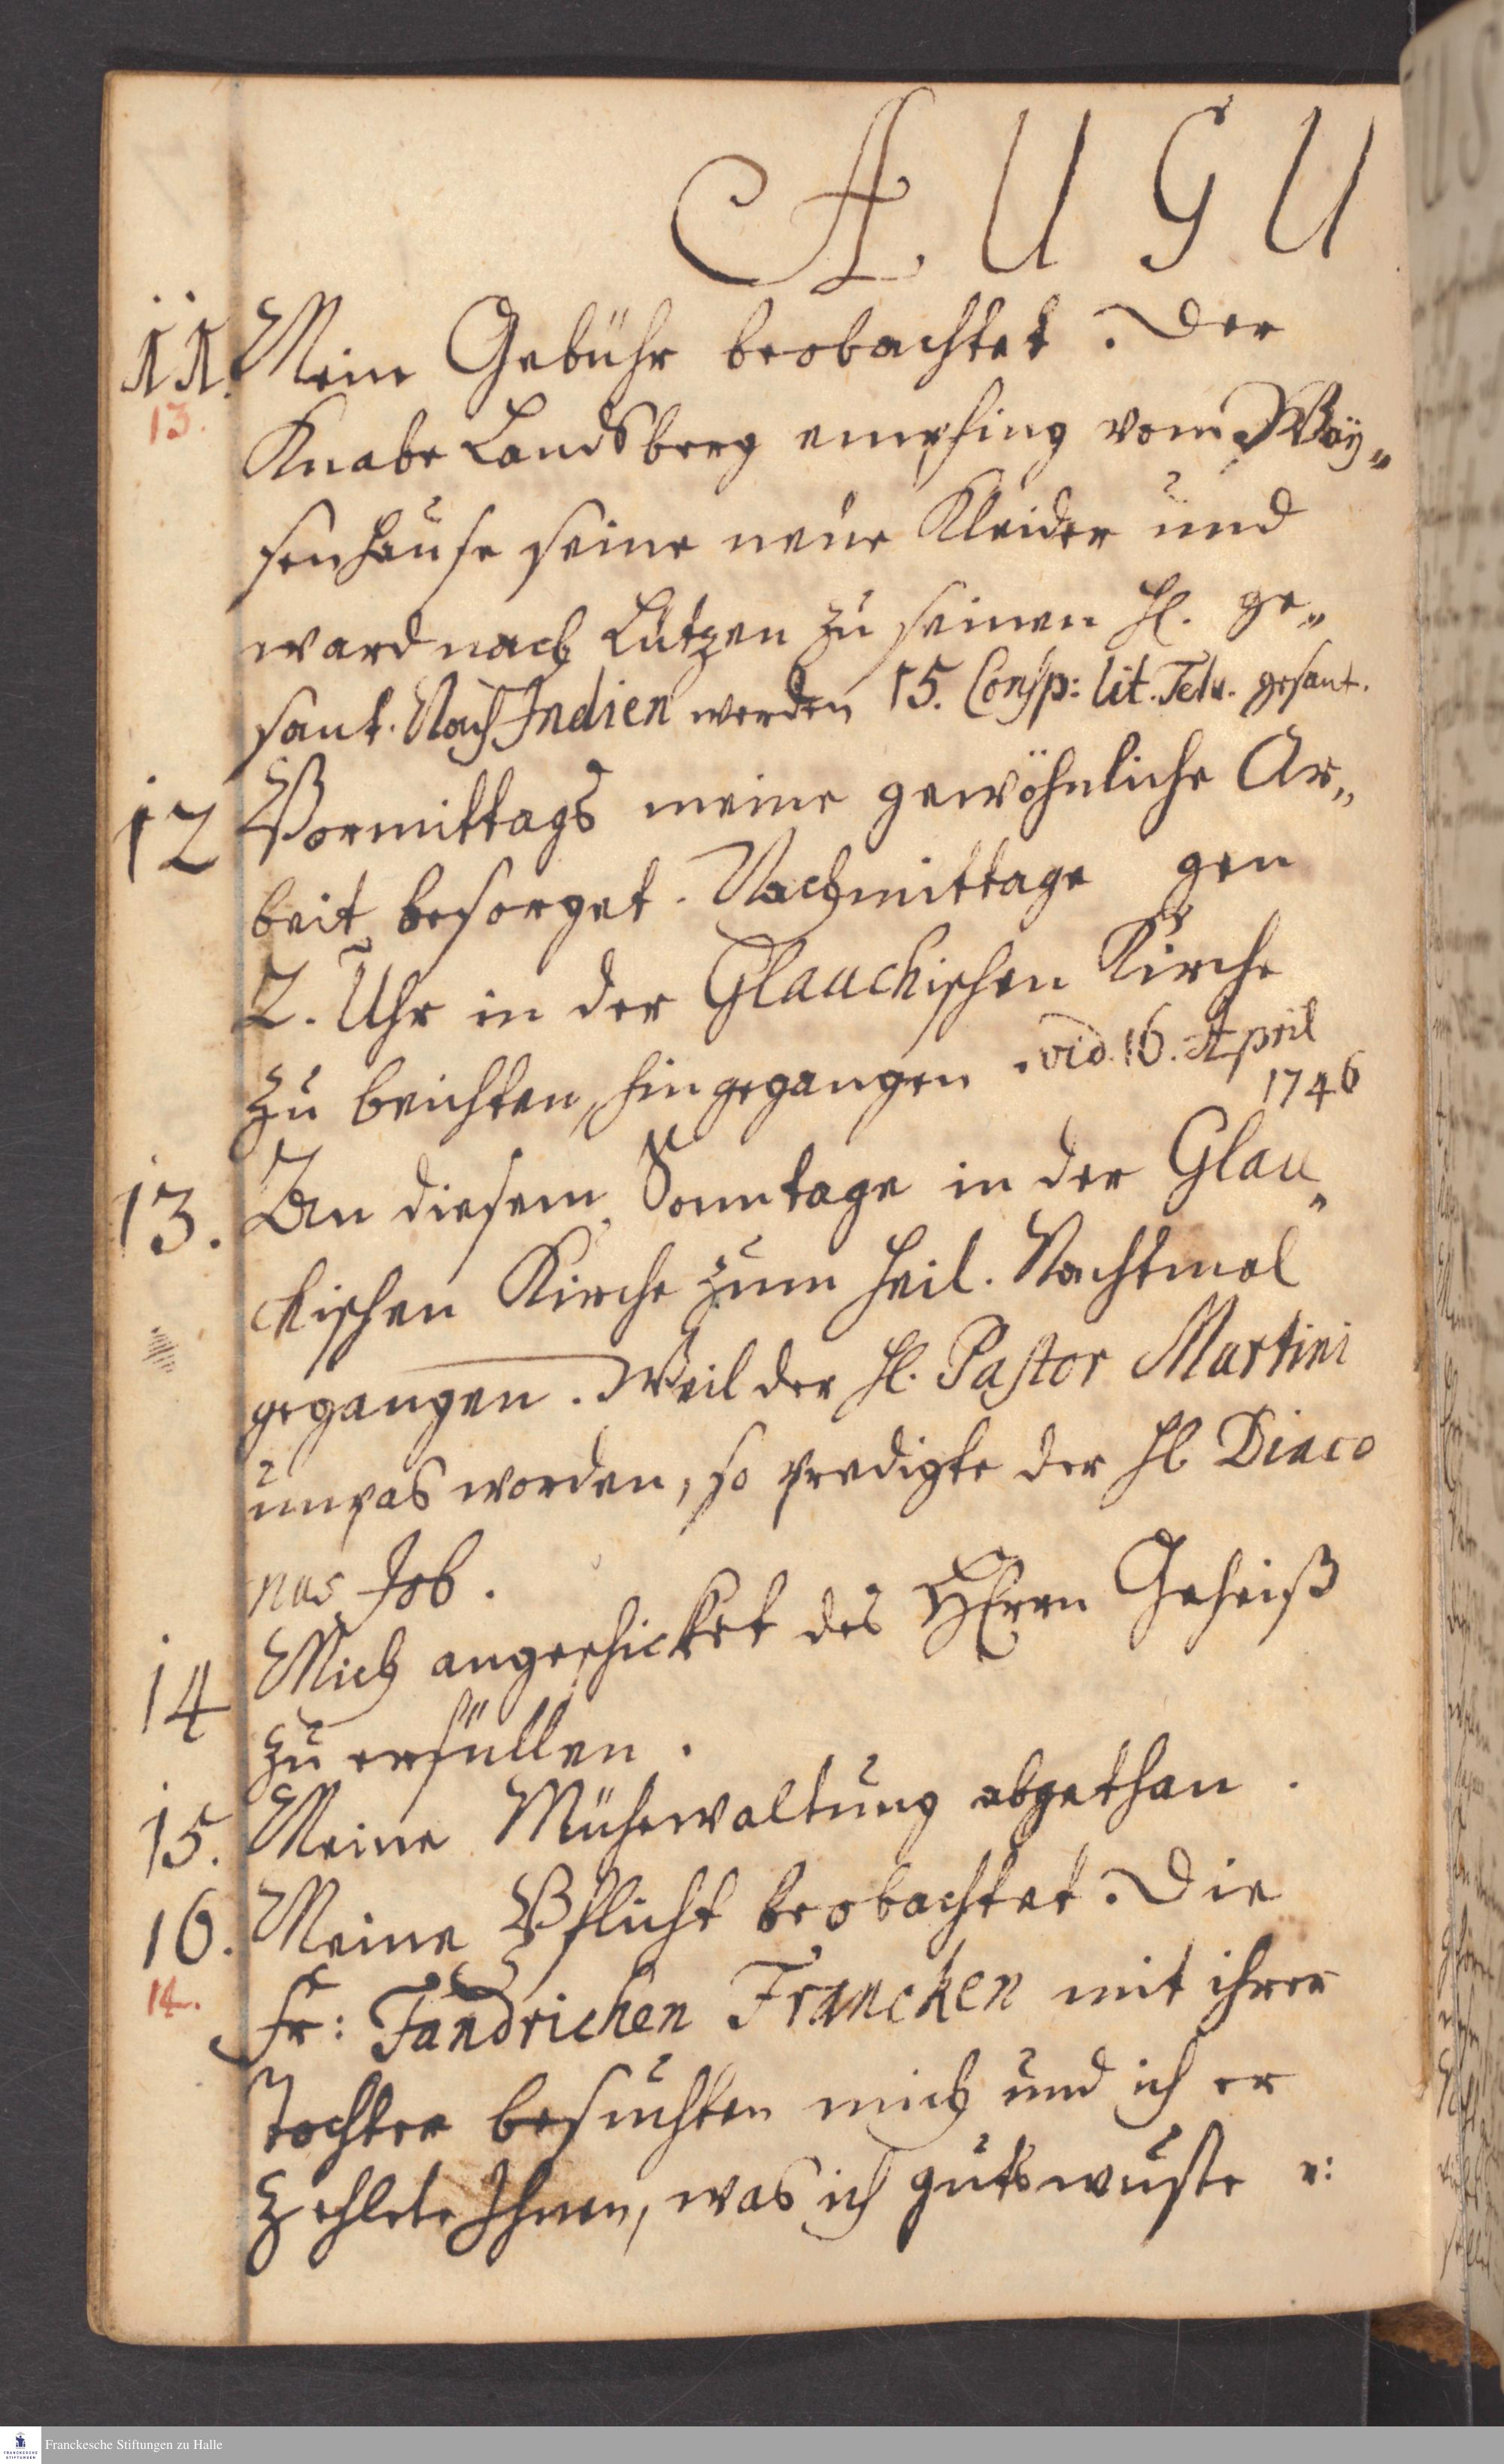 A U G U
11. Mein Gebühr beobachtet. Der
13.
Knabe Landsberg empfing vom Way„
senhause seine neue Kleider und
ward nach Lützen zu seinen H. ge„
sant. Nach Indien werden 15. Consp: lit. Telu. gesant.
12 Vormittags meine gewöhnliche Ar„
beit besorget. Nachmittage gen
2. Uhr in der Glauchischen Kirche
zu beichten hingegangen. vid. 16. April
1746
13. An diesem Sonntage in der Glau„
chischen Kirche zum heil. Nachtmal
gegangen. Weil der H. Pastor Martini
unpas worden, so predigte der H. Diaco
nus Job.
14 Mich angeschicket des HErrn Geheiß
zu erfüllen.
15. Meine Mühewaltung abgethan.
16. Meine Pflicht beobachtet. Die
14.
Fr: Fändrichen Francken mit ihrer
Tochter besuchten mich und ich er
zehlete Ihnen, was ich guts wuste
Franckesche Stiftungen zu Halle